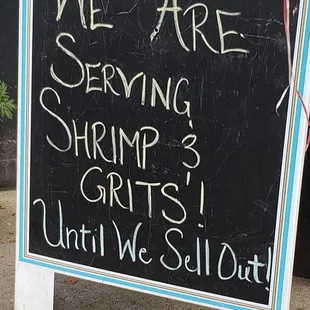 WE ARE
SERVING
SHRIMP &
GRITS'!
Until We Sell Out!